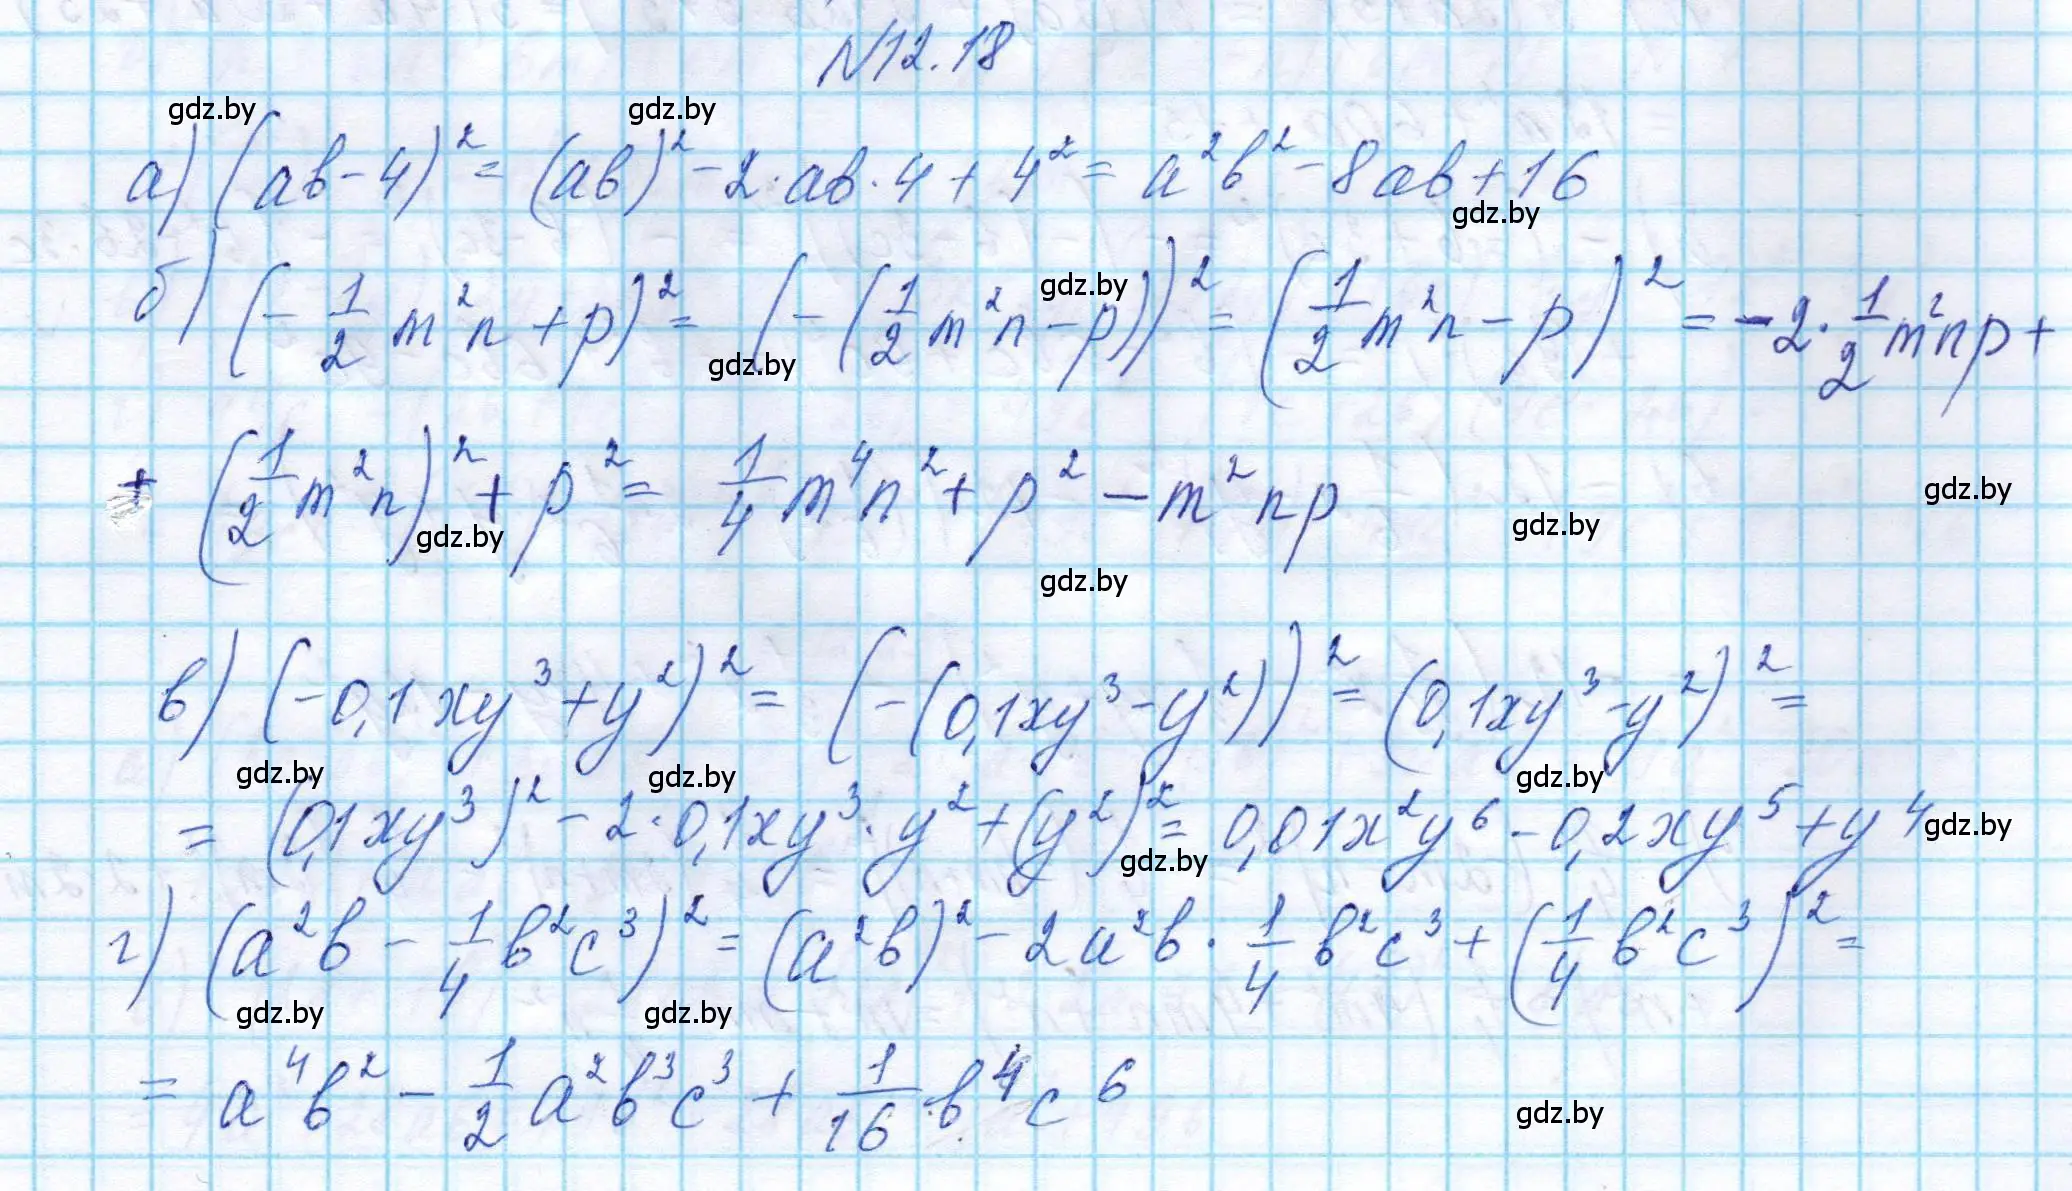 N12.18
gdz.by gdz.by
а) (ab-4)² = (ab)² - 2·ab·4 + 4² = a²b² - 8ab + 16
gdz.by
б) (-1/2 m²n + p)² = (-(1/2 m²n - p))² = (1/2 m²n - p)² = -2·1/2 m²np +
gdz.by
gdz.by
+ (1/2 m²n)² + p² = 1/4 m⁴n² + p² - m²np
gdz.by gdz.by gdz.by
gdz.by
в) (-0,1xy³ + y²)² = (-(0,1xy³ - y²))² = (0,1xy³ - y²)² =
gdz.by gdz.by gdz.by
= (0,1xy³)² - 2·0,1xy³·y² + (y²)² = 0,01x²y⁶ - 0,2xy⁵ + y⁴
gdz.by gdz.by
г) (a²b - 1/4 b²c³)² = (a²b)² - 2a²b·1/4 b²c³ + (1/4 b²c³)² =
gdz.by gdz.by
= a⁴b² - 1/2 a²b³c³ + 1/16 b⁴c⁶
gdz.by